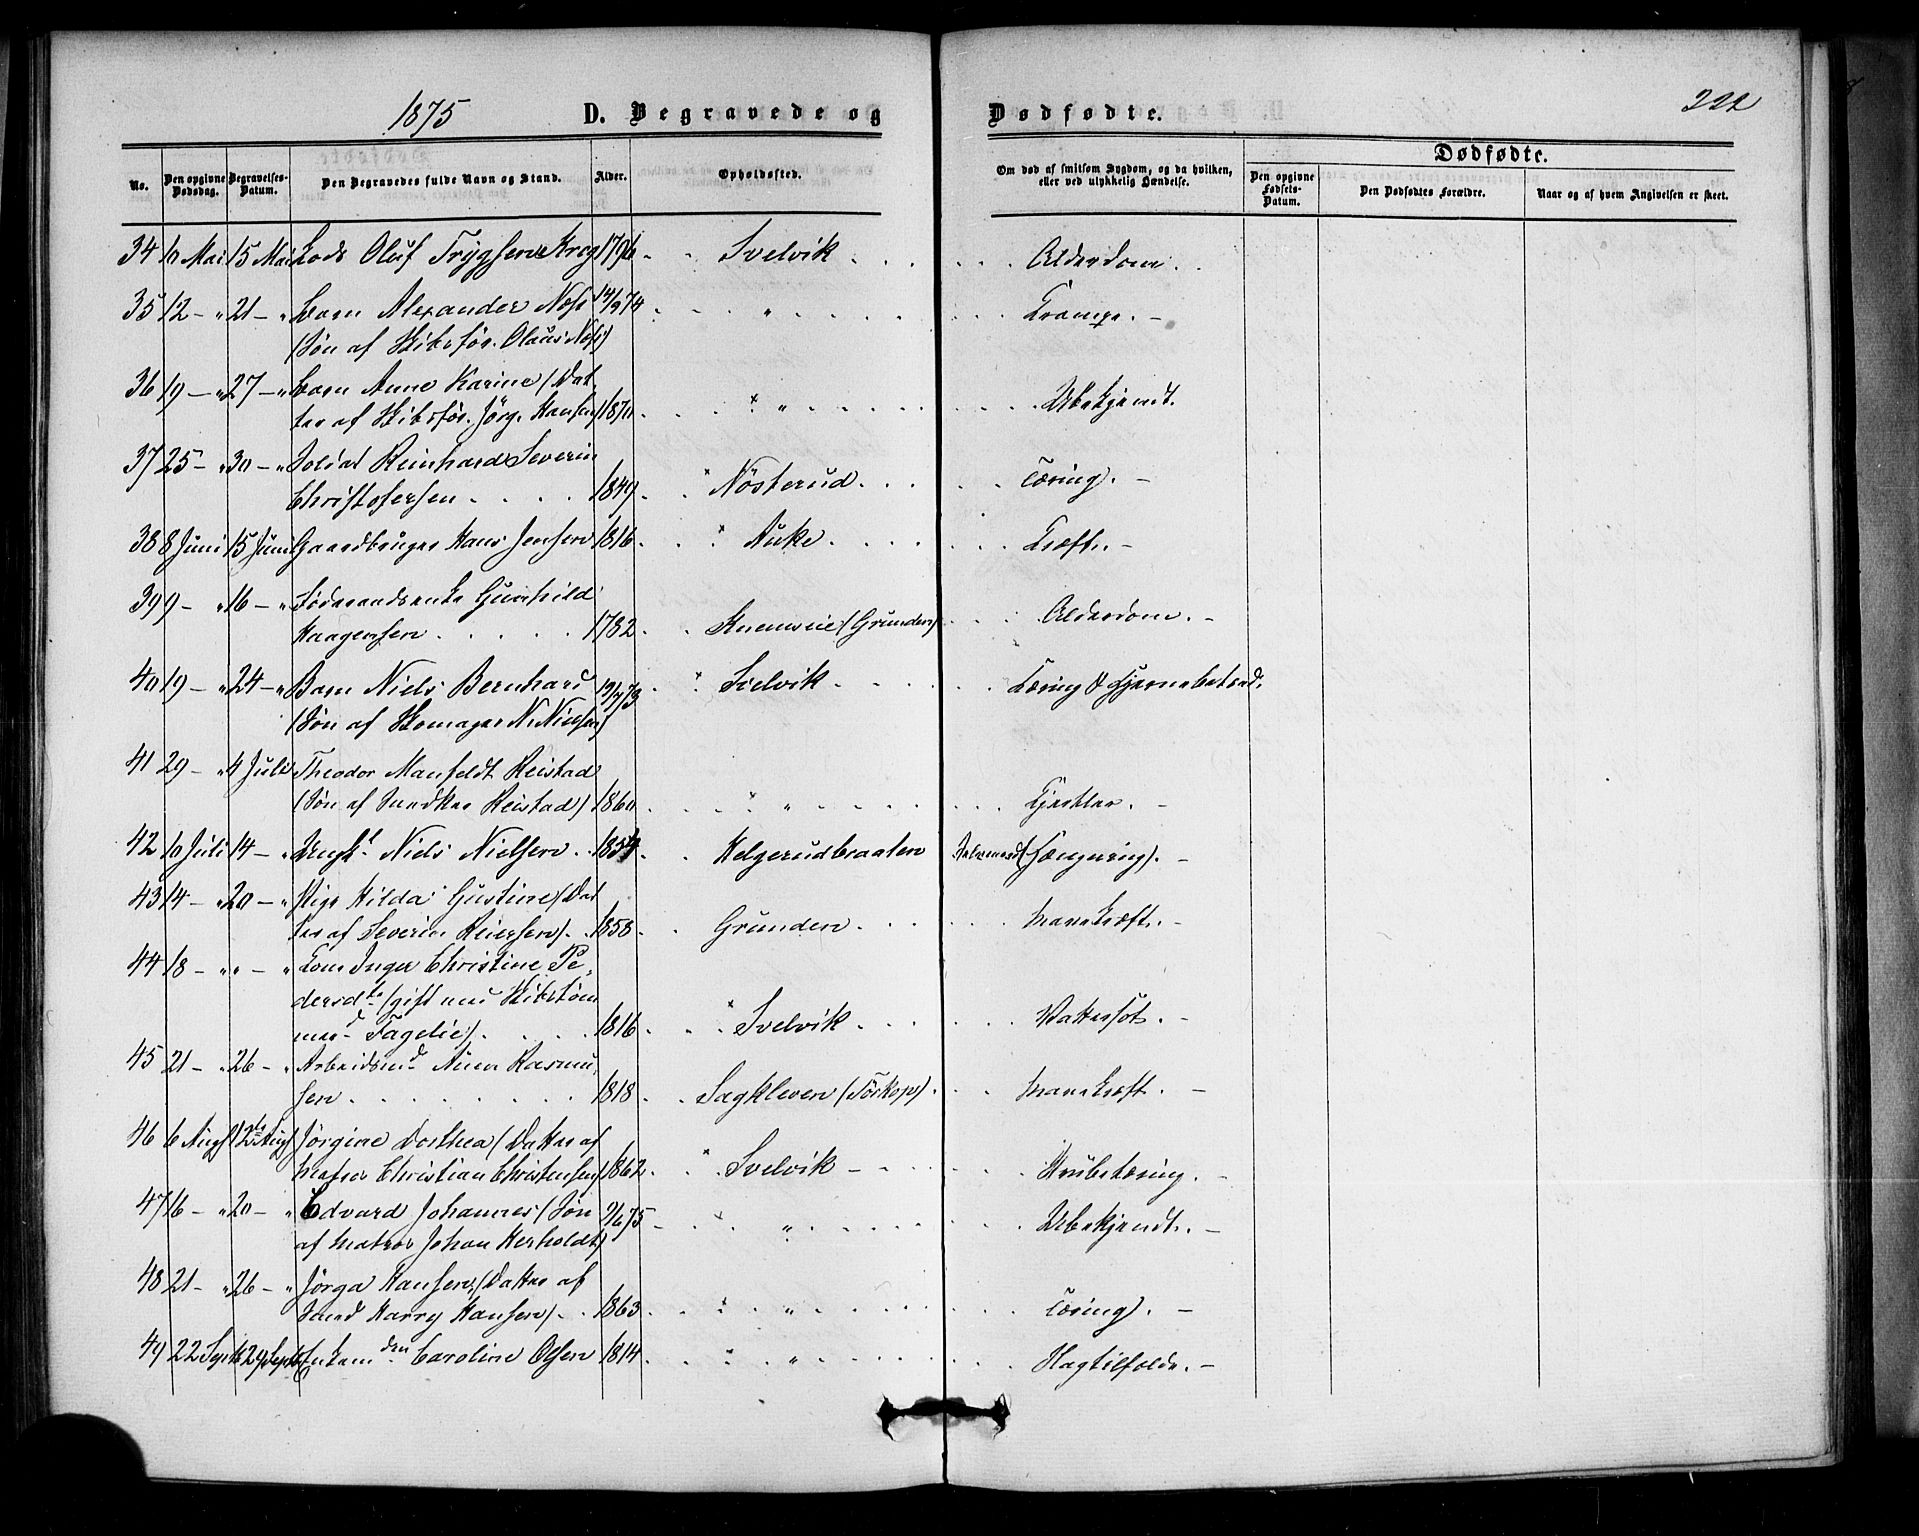 1875 D. Begravede og Dødfødte. 222
No. Den opgivne Dødsdag. Begravelses-Datum. Den Begravedes fulde Navn og Stand. Alder. Opholdssted. Om død af smitsom Sygdom, og da hvilken, eller ved ulykkelig Hændelse. Dødfødte. Den opgivne Fødsels-Datum. Den Dødfødtes Forældre. Naar og af hvem Angivelsen er skeet.
34 10 Mai 15 Mai Lods Oluf Trygsen Krog 1796 Svelvik Alderdom.
35 12 - " 21 - " Barn Alexander Nøss 14/9 74 " Krampe. -
(Søn af Skibsfør. Olaus Nøss)
36 19 - " 27 - " Barn Anne Karine (Dat-
ter af Skibsfør. Jörg. Hansen) 1870 " Ubekjendt.
37 25 - " 30 - " Soldat Reinhard Severin
Christofersen 1849 Nösterud Tæring. -
38 8 Juni 15 Juni Gaardbruger Hans Jensen 1816 Auke Kræft. -
39 9 - " 16 - " Föderaadsenke Gunhild
Haagensen 1782 Knemveie (Grunden) Alderdom. -
40 19 - " 24 - " Barn Niels Bernhard 19/7 73 Svelvik Tæring & Hjernebetænd.
(Søn af Skomager N. Nielsen)
41 29 - " 4 Juli Theodor Manfeldt Reistad
(Søn af Snedker Reistad) 1860 " Kjertler. -
42 10 Juli 14 - " Ungk. Niels Nielsen 1854 Helgerudbraaten Selvmord (Hængning). -
43 14 - " 20 - " Pige Hilda Gustine (Dat
ter af Severin Reiersen) 1858 Grunden Mavekræft. -
44 18 - " " - " Kone Inger Christine Pe-
dersdtr (gift med Skibstöm
merd Fagelie) 1816 Svelvik Vattersot. -
45 21 - " 26 - " Arbeidsmd Anen Rasmu-
sen 1818 Sagkleven (Törkop) Mavekræft. -
46 6 Aug 12te Aug Jörgine Dorthea (Datter af
Matros Christian Christensen) 1862 Svelvik Strubetæring. -
47 16 - " 20 - " Edvard Johannes (Søn 2/6 75 " Ubekjendt. -
af Matros Johan Herholdt)
48 21 - " 26 - " Jörga Hansen (Datter af
Smed Harry Hansen) 1863 " Tæring. -
49 22 Sept 29 Sept Enkem Caroline Olsen 1814 " Slagtilfælde. -